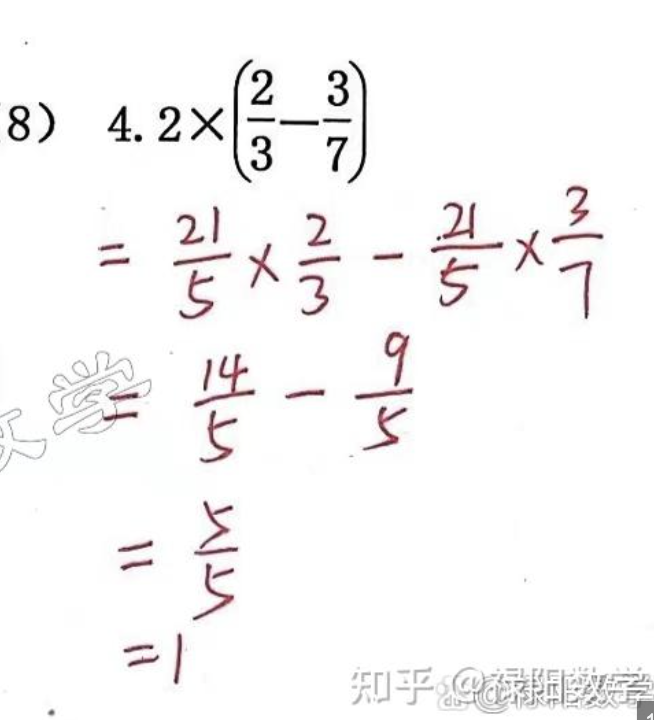 8) 4.2×(2/3−3/7)
= 21/5 × 2/3 − 21/5 × 3/7
= 14/5 − 9/5
= 5/5
=1
学
知乎 @禄阳数学